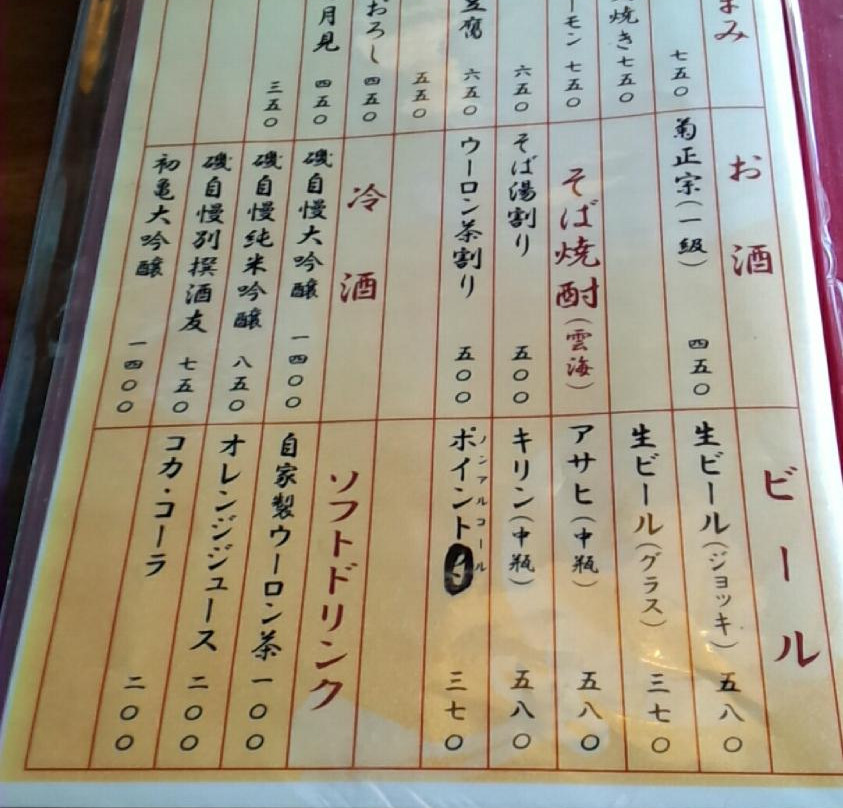 まみ
七五〇
焼き 七五〇
ーモン 七五〇
六五〇
豆腐 六五〇
五五〇
おろし 四五〇
月見 四五〇
三五〇
お酒
菊正宗(一級) 四五〇
そば焼酎(雲海)
そば湯割り 五〇〇
ウーロン茶割り 五〇〇
冷酒
磯自慢大吟醸 一四〇〇
磯自慢純米吟醸 八五〇
磯自慢別撰酒友 七五〇
初亀大吟醸 一四〇〇
ビール
生ビール(ジョッキ) 五八〇
生ビール(グラス) 三七〇
アサヒ(中瓶) 五八〇
キリン(中瓶) 五八〇
ノンアルコール
ポイント0 三七〇
ソフトドリンク
自家製ウーロン茶 一〇〇
オレンジジュース 二〇〇
コカ・コーラ 二〇〇